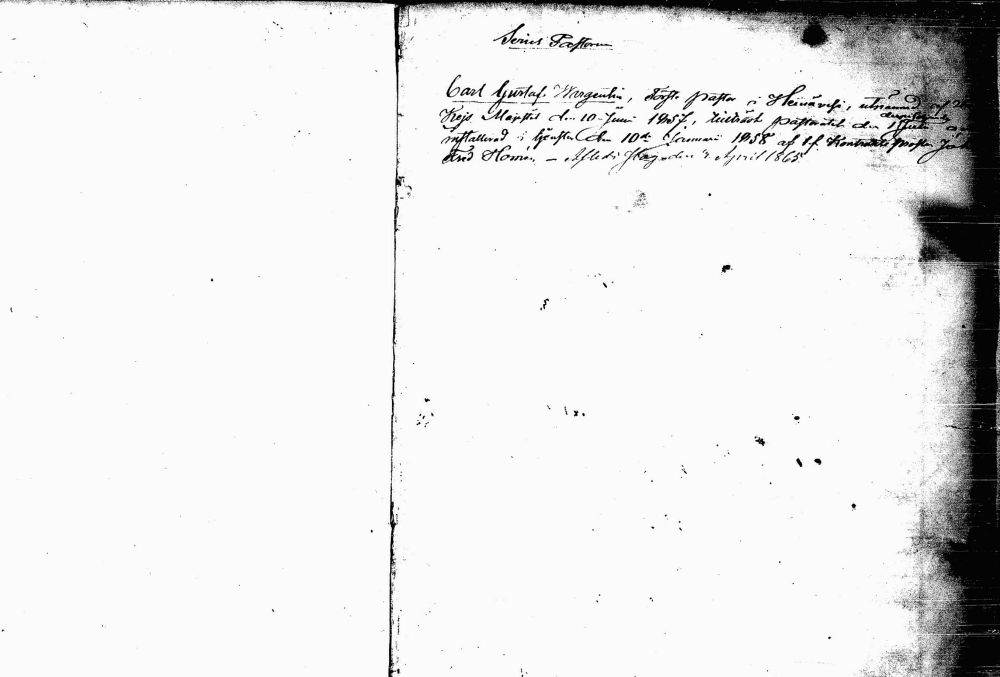 Series Pastorum
Carl Gustaf Wargentin, förste pastor i Heinävesi, utnämnd af
Kejs Maj:stät den 10 Juni 1857, tillträdt pastoratet den 1 Juli
installerad i tjensten den 10de Januari 1858 af t.f. Kontraktsprosten
Homén. — Afled i Slag den April 1865